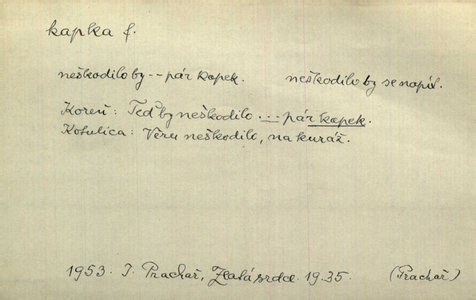 kapka f.
neškodilo by -- pár kapek. neškodilo by se napít.
Koreň: Teď by neškodilo ... pár kapek.
Kotulica: Věru neškodilo, na kuráž.
1953. I. Prachař, Zlatá srdce. 19.35. (Prachař)